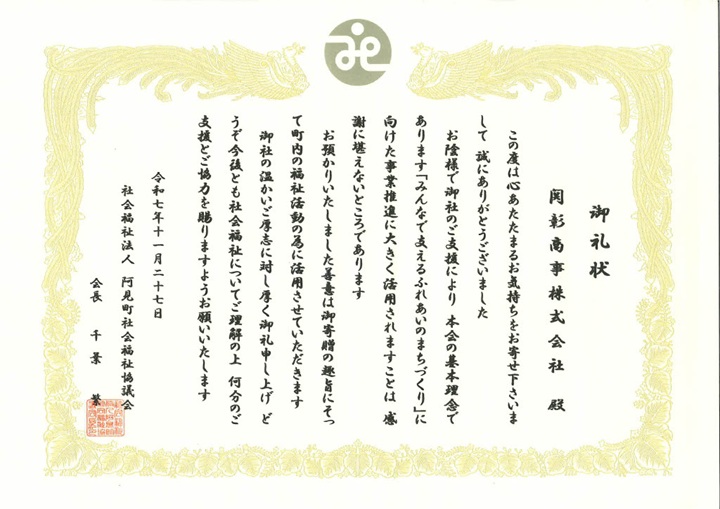 御礼状
関彰商事株式会社 殿
この度は心あたたまるお気持ちをお寄せ下さいま
して 誠にありがとうございました
お陰様で御社のご支援により 本会の基本理念で
あります「みんなで支えるふれあいのまちづくり」に
向けた事業推進に大きく活用されますことは 感
謝に堪えないところであります
お預かりいたしました善意は御寄贈の趣旨にそっ
て町内の福祉活動の為に活用させていただきます
御社の温かいご厚志に対し厚く御礼申し上げ ど
うぞ今後とも社会福祉についてご理解の上 何分のご
支援とご協力を賜りますようお願いいたします
令和七年十一月二十七日
社会福祉法人 阿見町社会福祉協議会
会長 千葉 繁